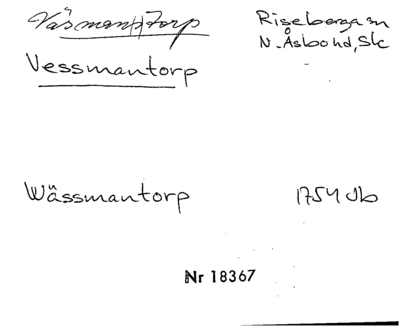 Väsmantorp Riseberga sn
N. Åsbo hd, Sk
Vessmantorp
Wässmantorp 1754 Jb
Nr 18367